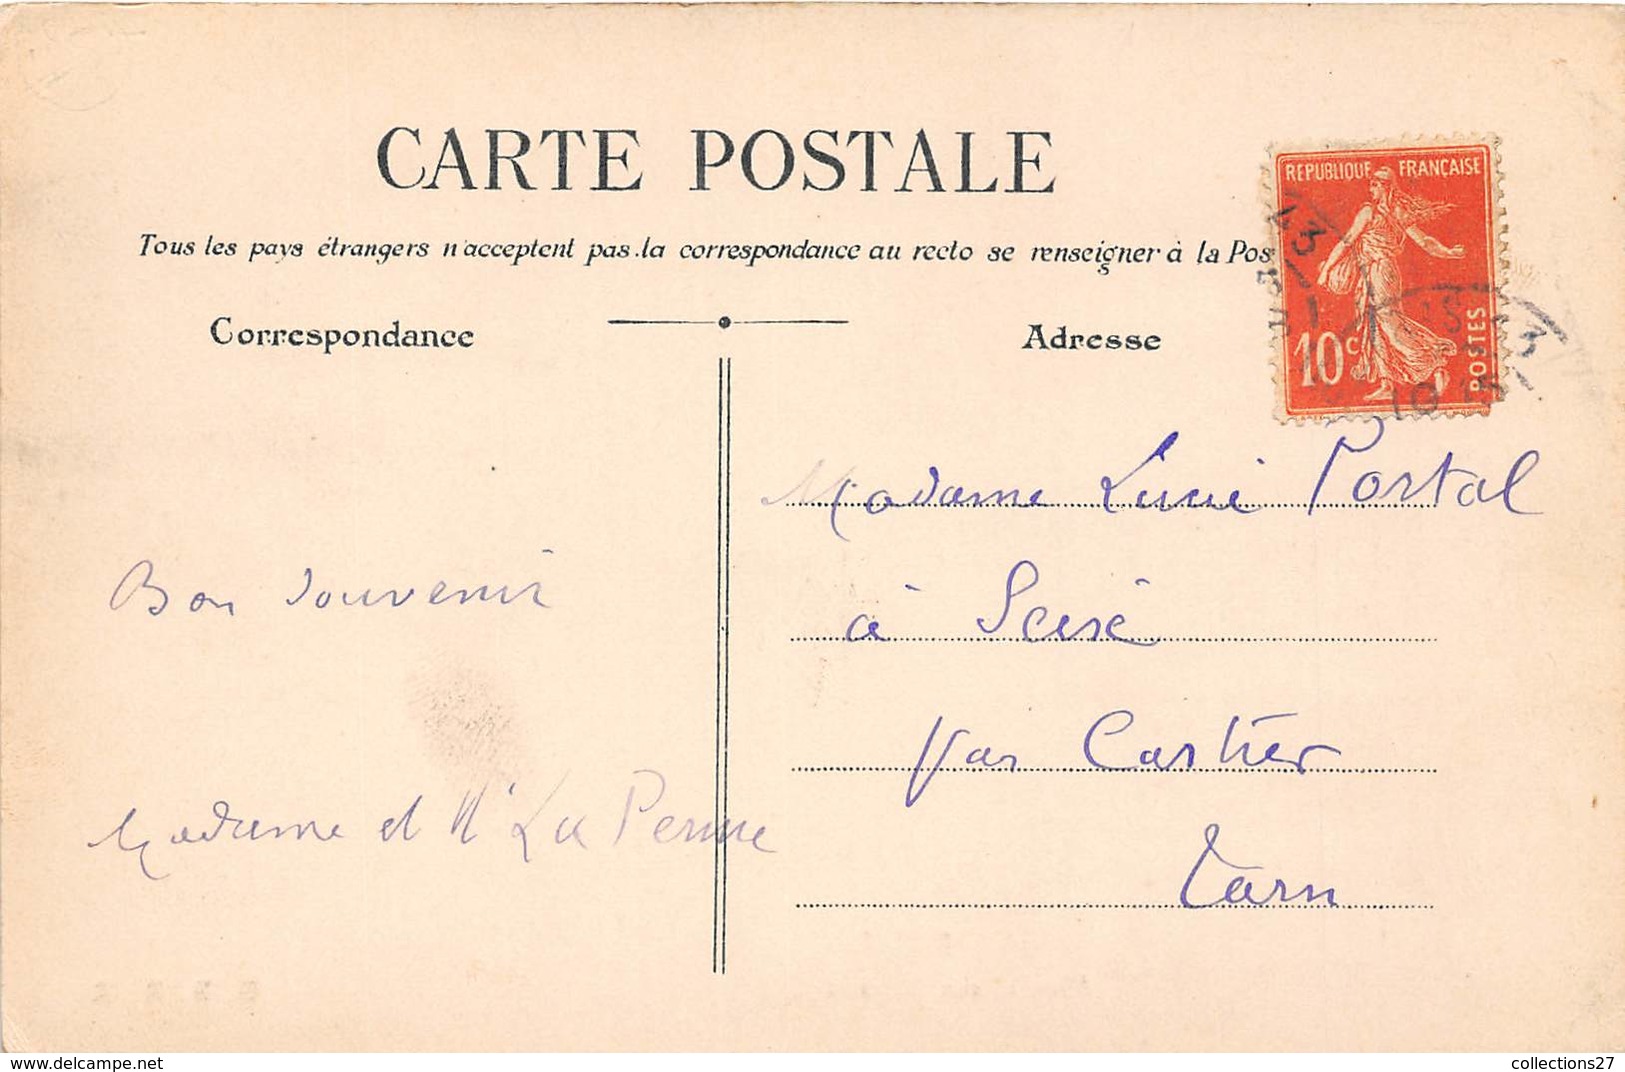 CARTE POSTALE
Tous les pays étrangers n'acceptent pas la correspondance au recto se renseigner à la Pos
Correspondance
Adresse
REPUBLIQUE FRANÇAISE
10c
POSTES
Madame Lucie Portal
à
par Castres
Tarn
Bon souvenir
Madame et Mr La
delcampe.net
collections27